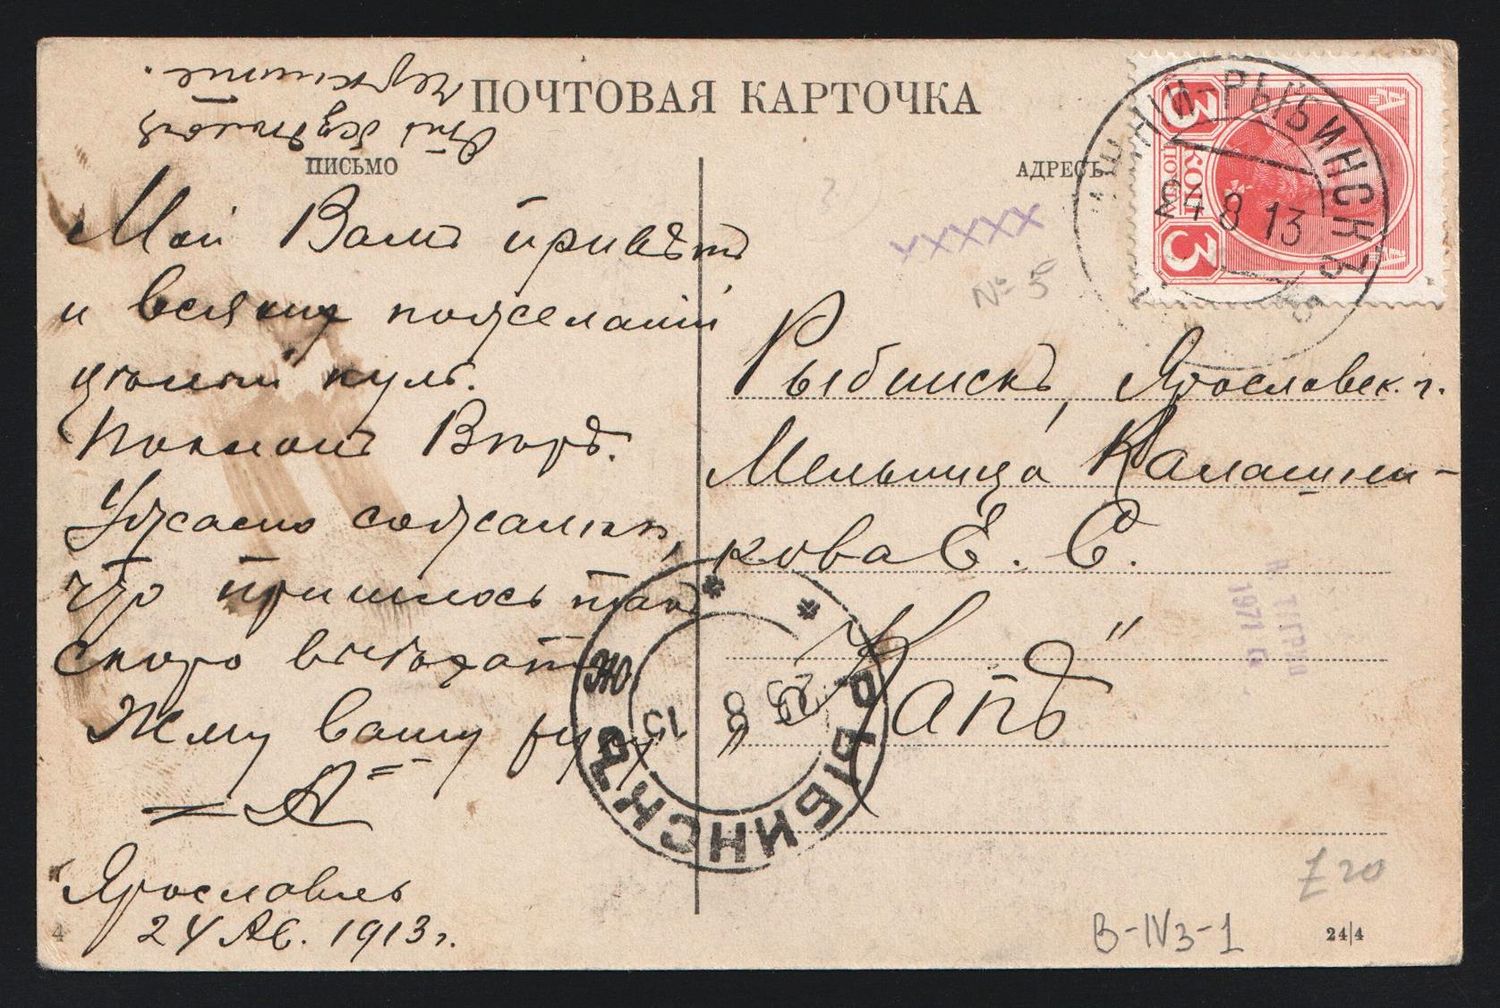 ПОЧТОВАЯ КАРТОЧКА
ПИСЬМО
АДРЕСЪ
Мой Вамъ привѣтъ
и всякихъ пожеланій
цѣлый куль.
Поклонъ Вѣрѣ.
Ужасно сожалѣю,
что пришлось такъ
скоро выѣхать
Жму вашу руку
=А=
Ярославль
24 Ав. 1913 г.
XXXXX
№ 5
Рыбинскъ, Ярославск. г.
Мельница Калашни-
кова Е. С.
"Капъ"
НІЙ-РЫБИНСКЪ
24 8 13
3 КОП 3
РЫБИНСКЪ
25 8 13
£20
B-IV3-1
4
24|4